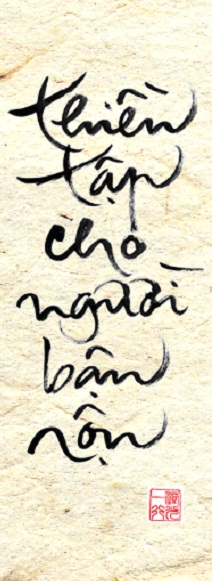 thiền
tập
cho
người
bận
rộn